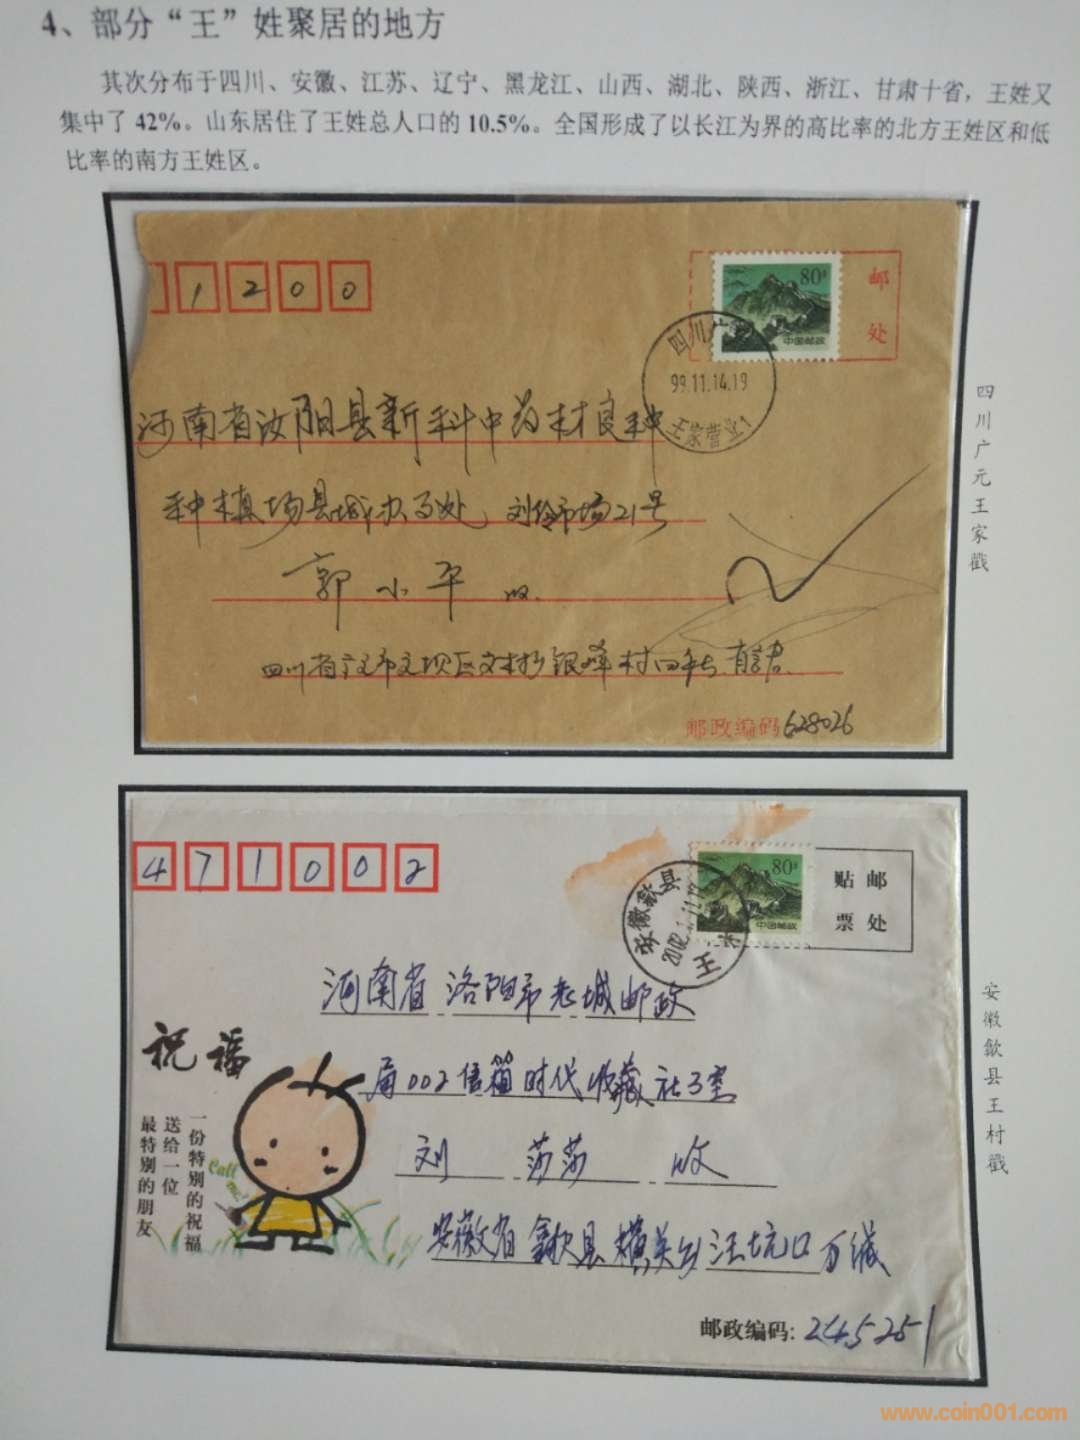 4、部分“王”姓聚居的地方
其次分布于四川、安徽、江苏、辽宁、黑龙江、山西、湖北、陕西、浙江、甘肃十省，王姓又
集中了 42%。山东居住了王姓总人口的 10.5%。全国形成了以长江为界的高比率的北方王姓区和低
比率的南方王姓区。
1 2 0 0
80分
中国邮政
邮
处
四川广
99.11.14.19
王家营业1
河南省汝阳县新科中药材良种
种植场县城办事处 刘伶市场21号
郭小平 收
四川省广元市元坝区文村乡银峰村四社
邮政编码 628026
四川广元王家戳
4 7 1 0 0 2
80分
中国邮政
贴邮
票处
安徽歙县
2002
王
河南省洛阳市老城邮政
局002信箱时代收藏社3室
刘莎莎 收
祝福
一份特别的祝福
送给一位
最特别的朋友
Call me!
安徽省歙县横关乡汪坑口
邮政编码: 245251
安徽歙县王村戳
www.coin001.com